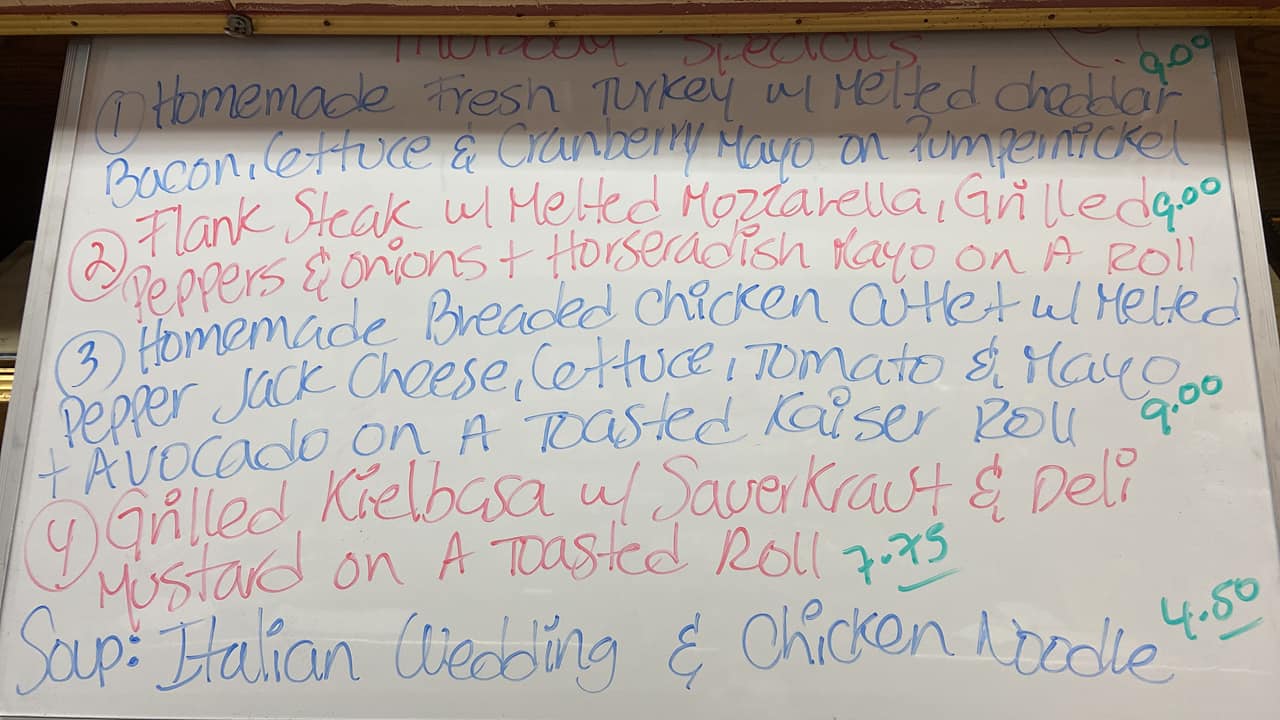 Monday Specials
① Homemade Fresh Turkey w/ Melted cheddar 9.00
Bacon, Lettuce & Cranberry Mayo on Pumpernickel
② Flank Steak w/ Melted Mozzarella, Grilled 9.00
Peppers & onions + Horseradish Mayo on A Roll
③ Homemade Breaded Chicken Cutlet w/ Melted
Pepper Jack Cheese, Lettuce, Tomato & Mayo
+ Avocado on A Toasted Kaiser Roll 9.00
④ Grilled Kielbasa w/ Sauerkraut & Deli
Mustard on A Toasted Roll 7.75
Soup: Italian Wedding & Chicken Noodle 4.50